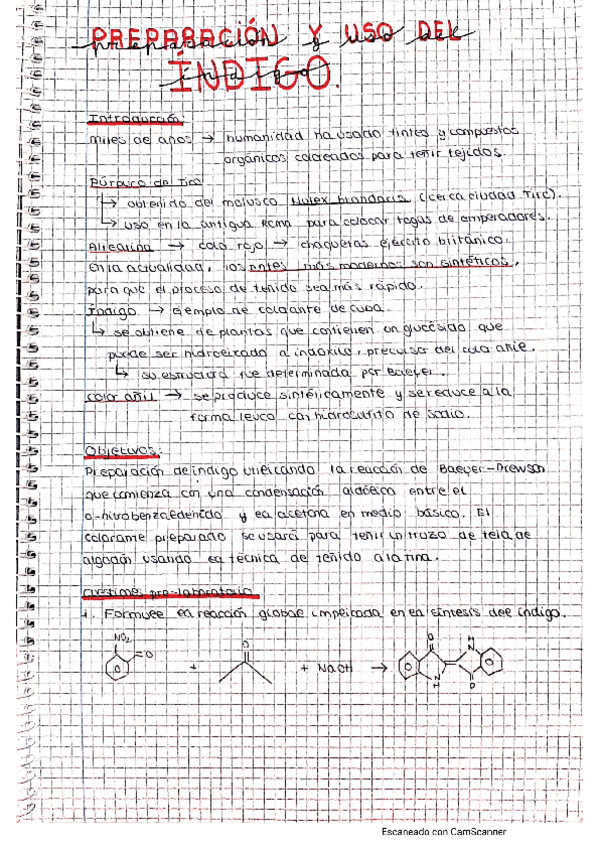 PREPARACIÓN Y USO DEL
ÍNDIGO.
Introducción:
miles de años → humanidad ha usado tintes y compuestos
orgánicos coloreados para teñir tejidos.
Púrpura de Tiro
↳ obtenido del molusco Mulex brandaris (cerca ciudad Tiro).
↳ uso en la antigua Roma para colocar togas de emperadores.
Alizarina → color rojo → chaquetas ejército británico.
En la actualidad, los más modernos son sintéticos,
para que el proceso de teñido sea más rápido.
Índigo → ejemplo de colorante de cuba.
↳ se obtiene de plantas que contienen un glucósido que
puede ser hidrolizado a indoxilo, precursor del color añil.
↳ su estructura fue determinada por Baeyer.
color añil → se produce sintéticamente y se reduce a la
forma leuco con hidrosulfito de sodio.
Objetivos:
Preparación de índigo utilizando la reacción de Baeyer-Drewson
que comienza con una condensación aldólica entre el
o-nitrobenzaldehído y la acetona en medio básico. El
colorante preparado se usará para teñir un trozo de tela de
algodón usando la técnica de teñido a la tina.
Cuestiones pre-laboratorio
1. Formule la reacción global implicada en la síntesis del índigo.
NO2 O O O H N
+ + NaOH →
N H O
Escaneado con CamScanner